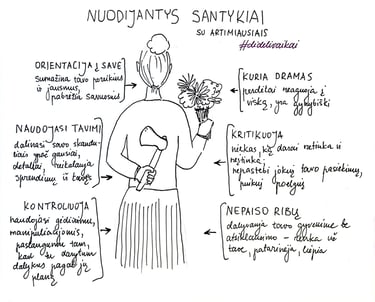 NUODIJANTYS SANTYKIAI
SU ARTIMIAUSIAIS
#didelivaikai
ORIENTACIJA Į SAVE
sumažina tavo poreikius
ir jausmus,
pabrėžia savuosius
NAUDOJASI TAVIMI
dalinasi savo skaudu-
liais ypač gausiai,
detaliai, reikalauja
sprendimų iš tavęs
KONTROLIUOJA
naudojasi gėdinimu,
manipuliacijomis,
paslaugumu tam,
kad tu darytum
dalykus pagal jų
planą
KURIA DRAMAS
perdėtai reaguoja į
viską, yra gynybiški
KRITIKUOJA
niekas, ką darai netinka ir
neįtinka;
nepastebi jokių tavo pasiekimų,
puikių poelgių
NEPAISO RIBŲ
dalyvauja tavo gyvenime be
atsiklausimo –
tave, patarinėja, liepia